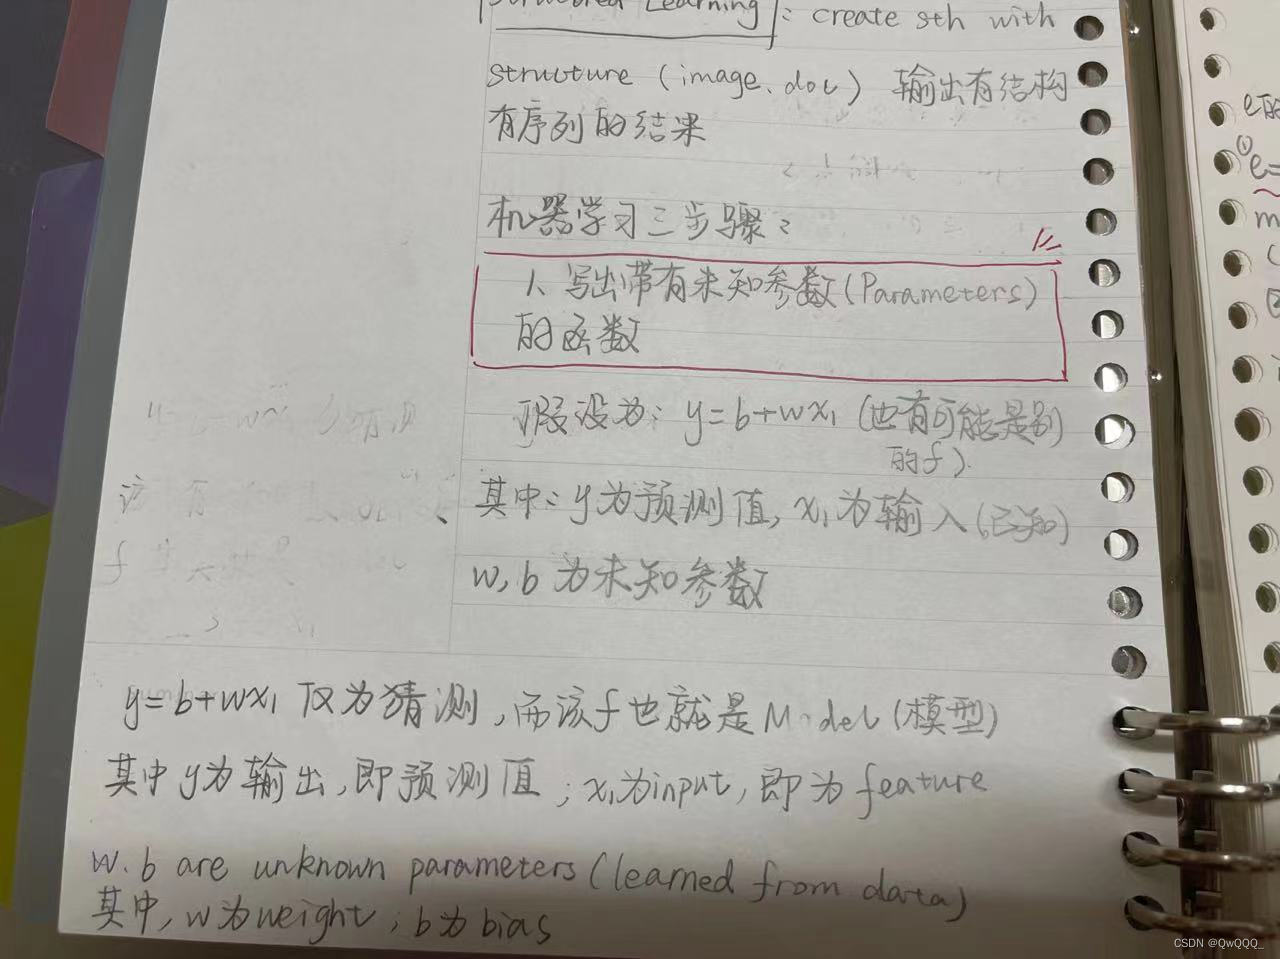 Structured Learning: create sth with
structure (image、doc) 输出有结构
有序列的结果
机器学习三步骤：
1、写出带有未知参数(Parameters)
的函数
假设为：y=b+wx₁ (也有可能是别
的f).
其中：y为预测值, x₁为输入(已知)
w, b 为未知参数
y=b+wx₁ 仅为猜测, 而该f也就是Model(模型)
其中y为输出, 即预测值; x₁为input, 即为feature
w. b are unknown parameters (learned from data)
其中, w为weight; b为bias
e的
① e=
m
CSDN @QwQQQ_